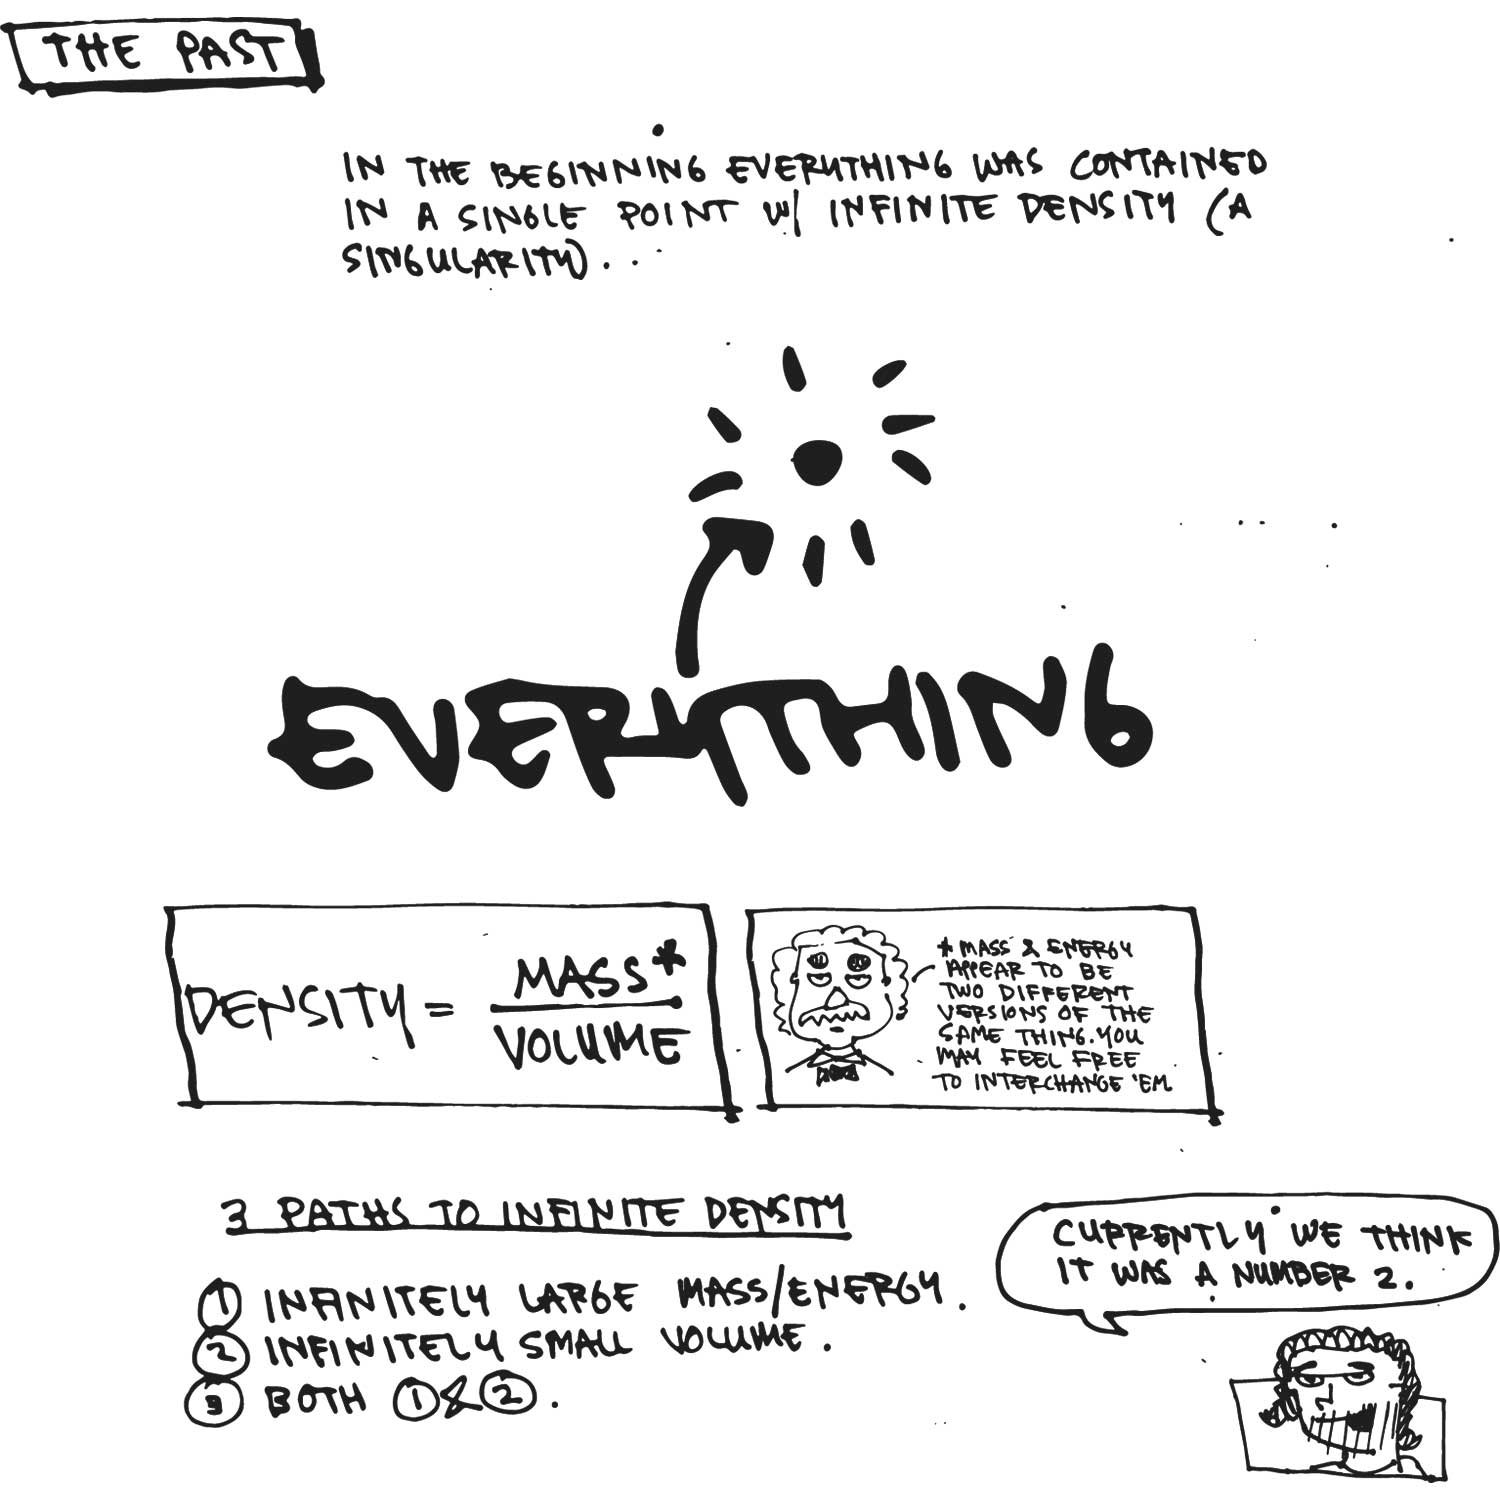 THE PAST
IN THE BEGINNING EVERYTHING WAS CONTAINED
IN A SINGLE POINT W/ INFINITE DENSITY (A
SINGULARITY)...
EVERYTHING
DENSITY = MASS*
VOLUME
* MASS & ENERGY
APPEAR TO BE
TWO DIFFERENT
VERSIONS OF THE
SAME THING. YOU
MAY FEEL FREE
TO INTERCHANGE 'EM.
3 PATHS TO INFINITE DENSITY
1 INFINITELY LARGE MASS/ENERGY.
2 INFINITELY SMALL VOLUME.
3 BOTH 1 & 2.
CURRENTLY WE THINK
IT WAS A NUMBER 2.